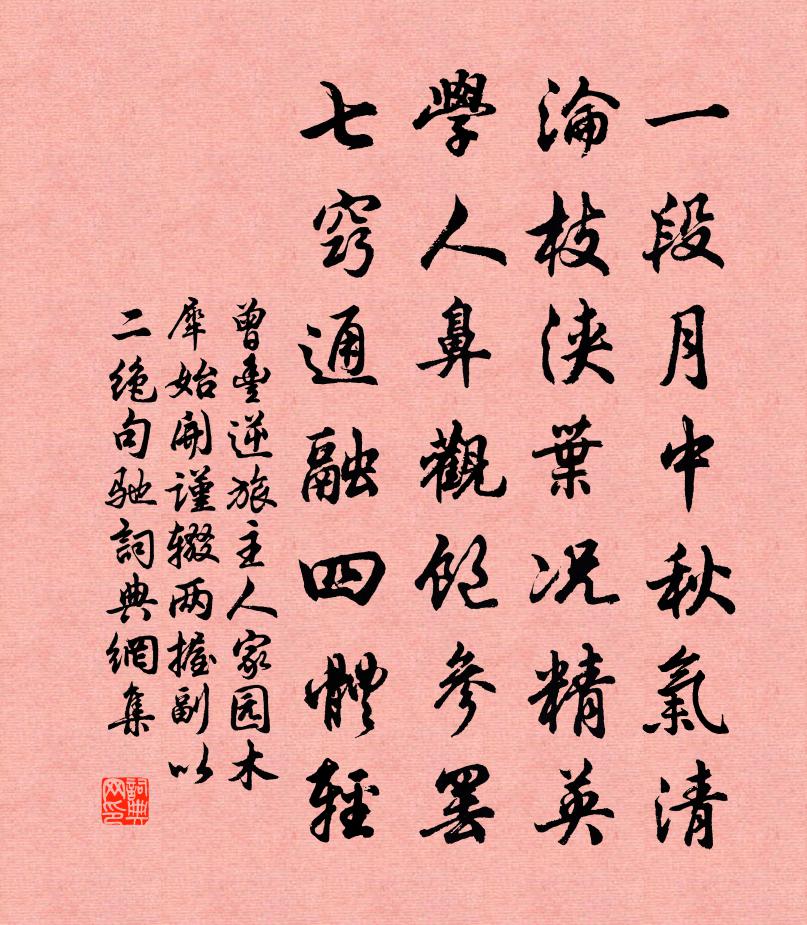 一段月中秋氣清
淪枝浹葉況精英
學人鼻觀飽參罷
七竅通融四體輕
曾豐逆旅主人家园木
犀始開謹辍两握副以
二绝句馳詞典網集
詞典网印